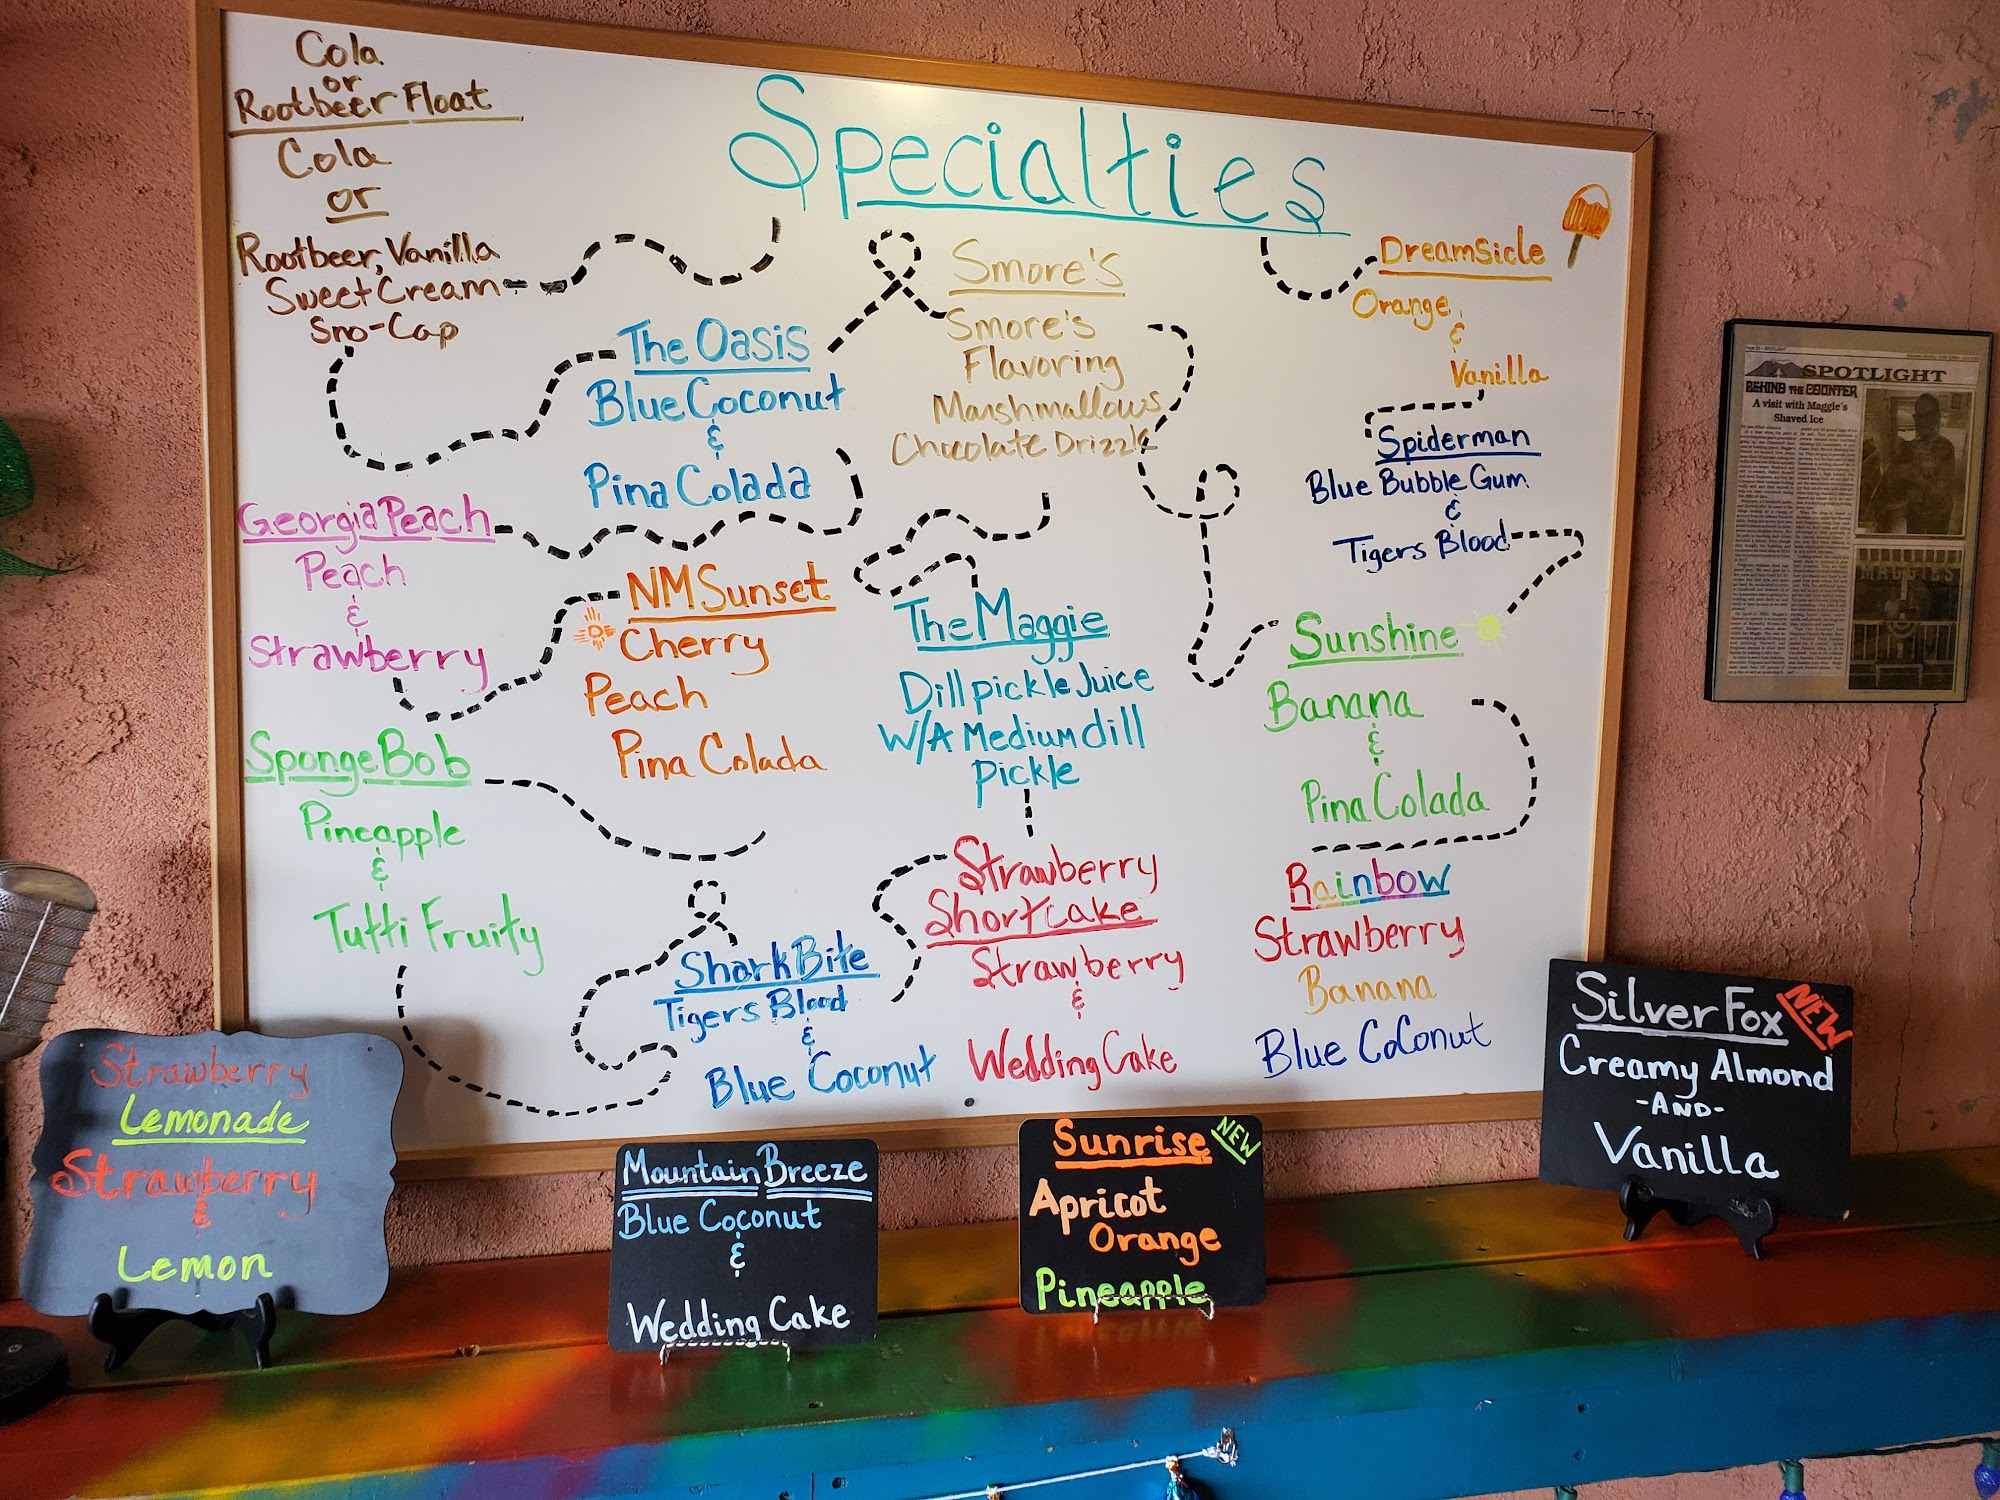 Specialties
Cola
or
Rootbeer Float
Cola
or
Rootbeer, Vanilla
Sweet Cream
Sno-Cap
The Oasis
Blue Coconut
&
Pina Colada
Smore's
Smore's
Flavoring
Marshmallows
Chocolate Drizzle
Dreamsicle
Orange
&
Vanilla
Spiderman
Blue Bubble Gum
&
Tigers Blood
Georgia Peach
Peach
&
Strawberry
NM Sunset
Cherry
Peach
Pina Colada
The Maggie
Dill pickle Juice
W/A Medium dill
Pickle
Sunshine
Banana
&
Pina Colada
SpongeBob
Pineapple
&
Tutti Fruity
Shark Bite
Tigers Blood
&
Blue Coconut
Strawberry
Shortcake
Strawberry
&
Wedding Cake
Rainbow
Strawberry
Banana
Blue CoConut
Strawberry
Lemonade
Strawberry
&
Lemon
Mountain Breeze
Blue Coconut
&
Wedding Cake
Sunrise NEW
Apricot
Orange
Pineapple
Silver Fox NEW
Creamy Almond
-AND-
Vanilla
SPOTLIGHT
BEHIND THE COUNTER
A visit with Maggie's
Shaved Ice
MAGGIE'S